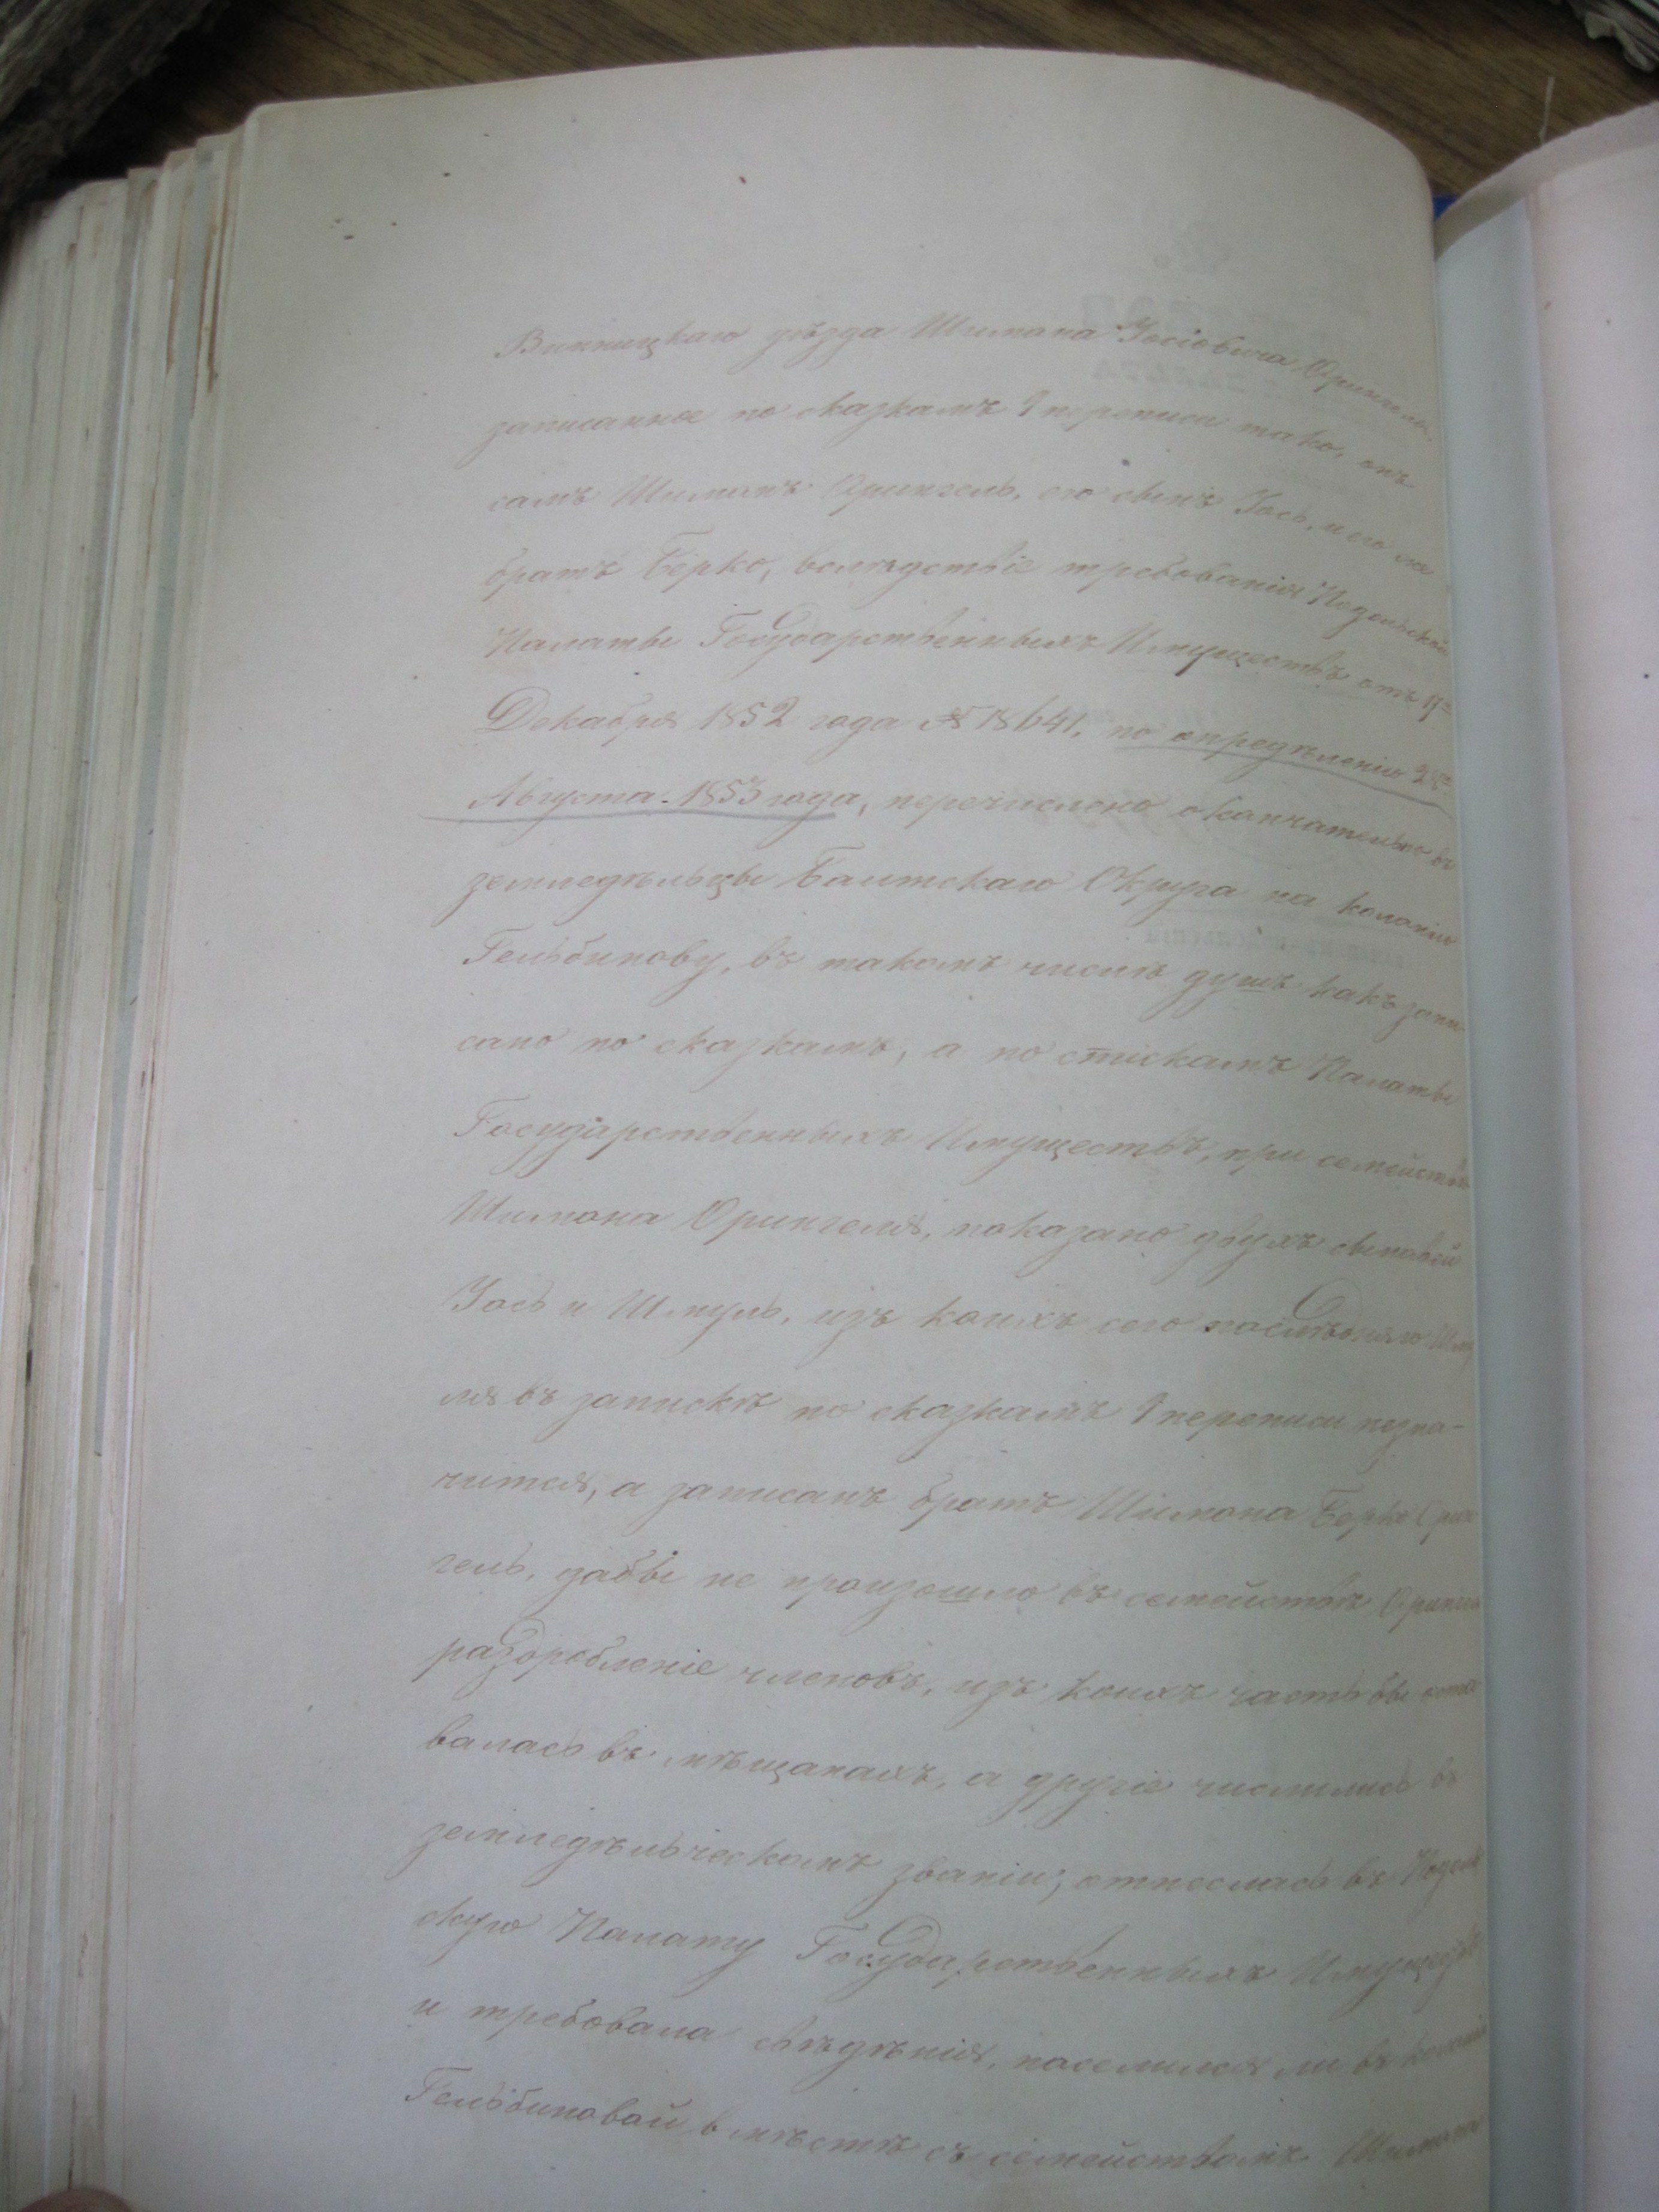 Винницкаго уѣзда Шимона Іосіовича Орингеля,
записанное по сказкамъ 9 переписи тако, онъ
самъ Шимонъ Орингель, его сынъ Іось, и его
братъ Берко, вслѣдствіе требованія Подольской
Палаты Государственныхъ Имуществъ отъ 17го
Декабря 1852 года № 18641, по опредѣленію
Августа 1853 года, перечислено окончательно въ
земледѣльцы Балтскаго Округа на колонію
Гельбинову, въ такомъ числѣ душъ какъ запи-
сано по сказкамъ, а по спискамъ Палаты
Государственныхъ Имуществъ, при семействѣ
Шимона Орингеля, показано двухъ сыновей
Іось и Шмуль, изъ коихъ сего послѣдняго Шму
ля въ запискѣ по сказкамъ 9 переписи незна-
чится, а записанъ братъ Шимона Берко Орин
гель, дабы не произошло въ семействѣ Орингеля
раздробленіе членовъ, изъ коихъ часть бы оста
валась въ мѣщанахъ, а другіе числились въ
земледѣльческомъ званіи, отнеслась въ Подоль
скую Палату Государственныхъ Имуществъ
и требовала свѣдѣнія, поселился ли въ колоніи
Гельбиновой вмѣстѣ съ семействомъ Шимона